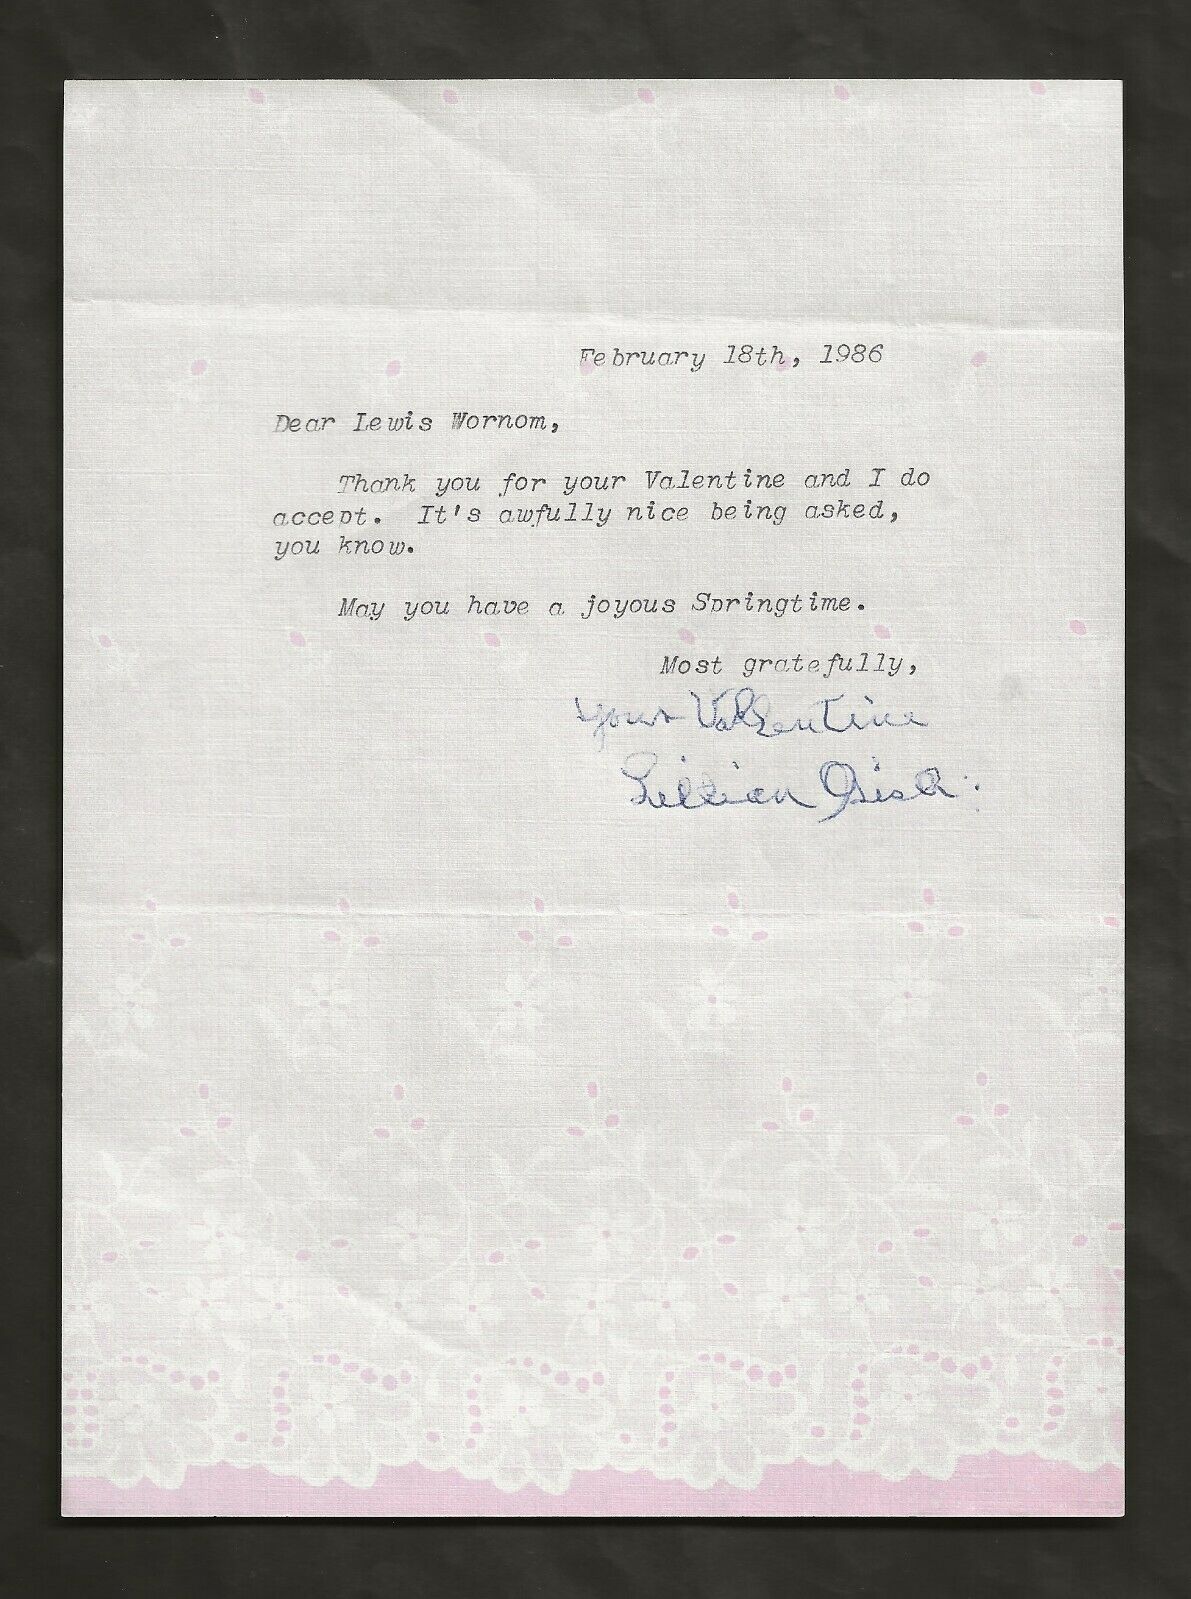 February 18th, 1986
Dear Lewis Wornom,
Thank you for your Valentine and I do
accept. It's awfully nice being asked,
you know.
May you have a joyous Springtime.
Most gratefully,
Your Valentine
Lillian Gish